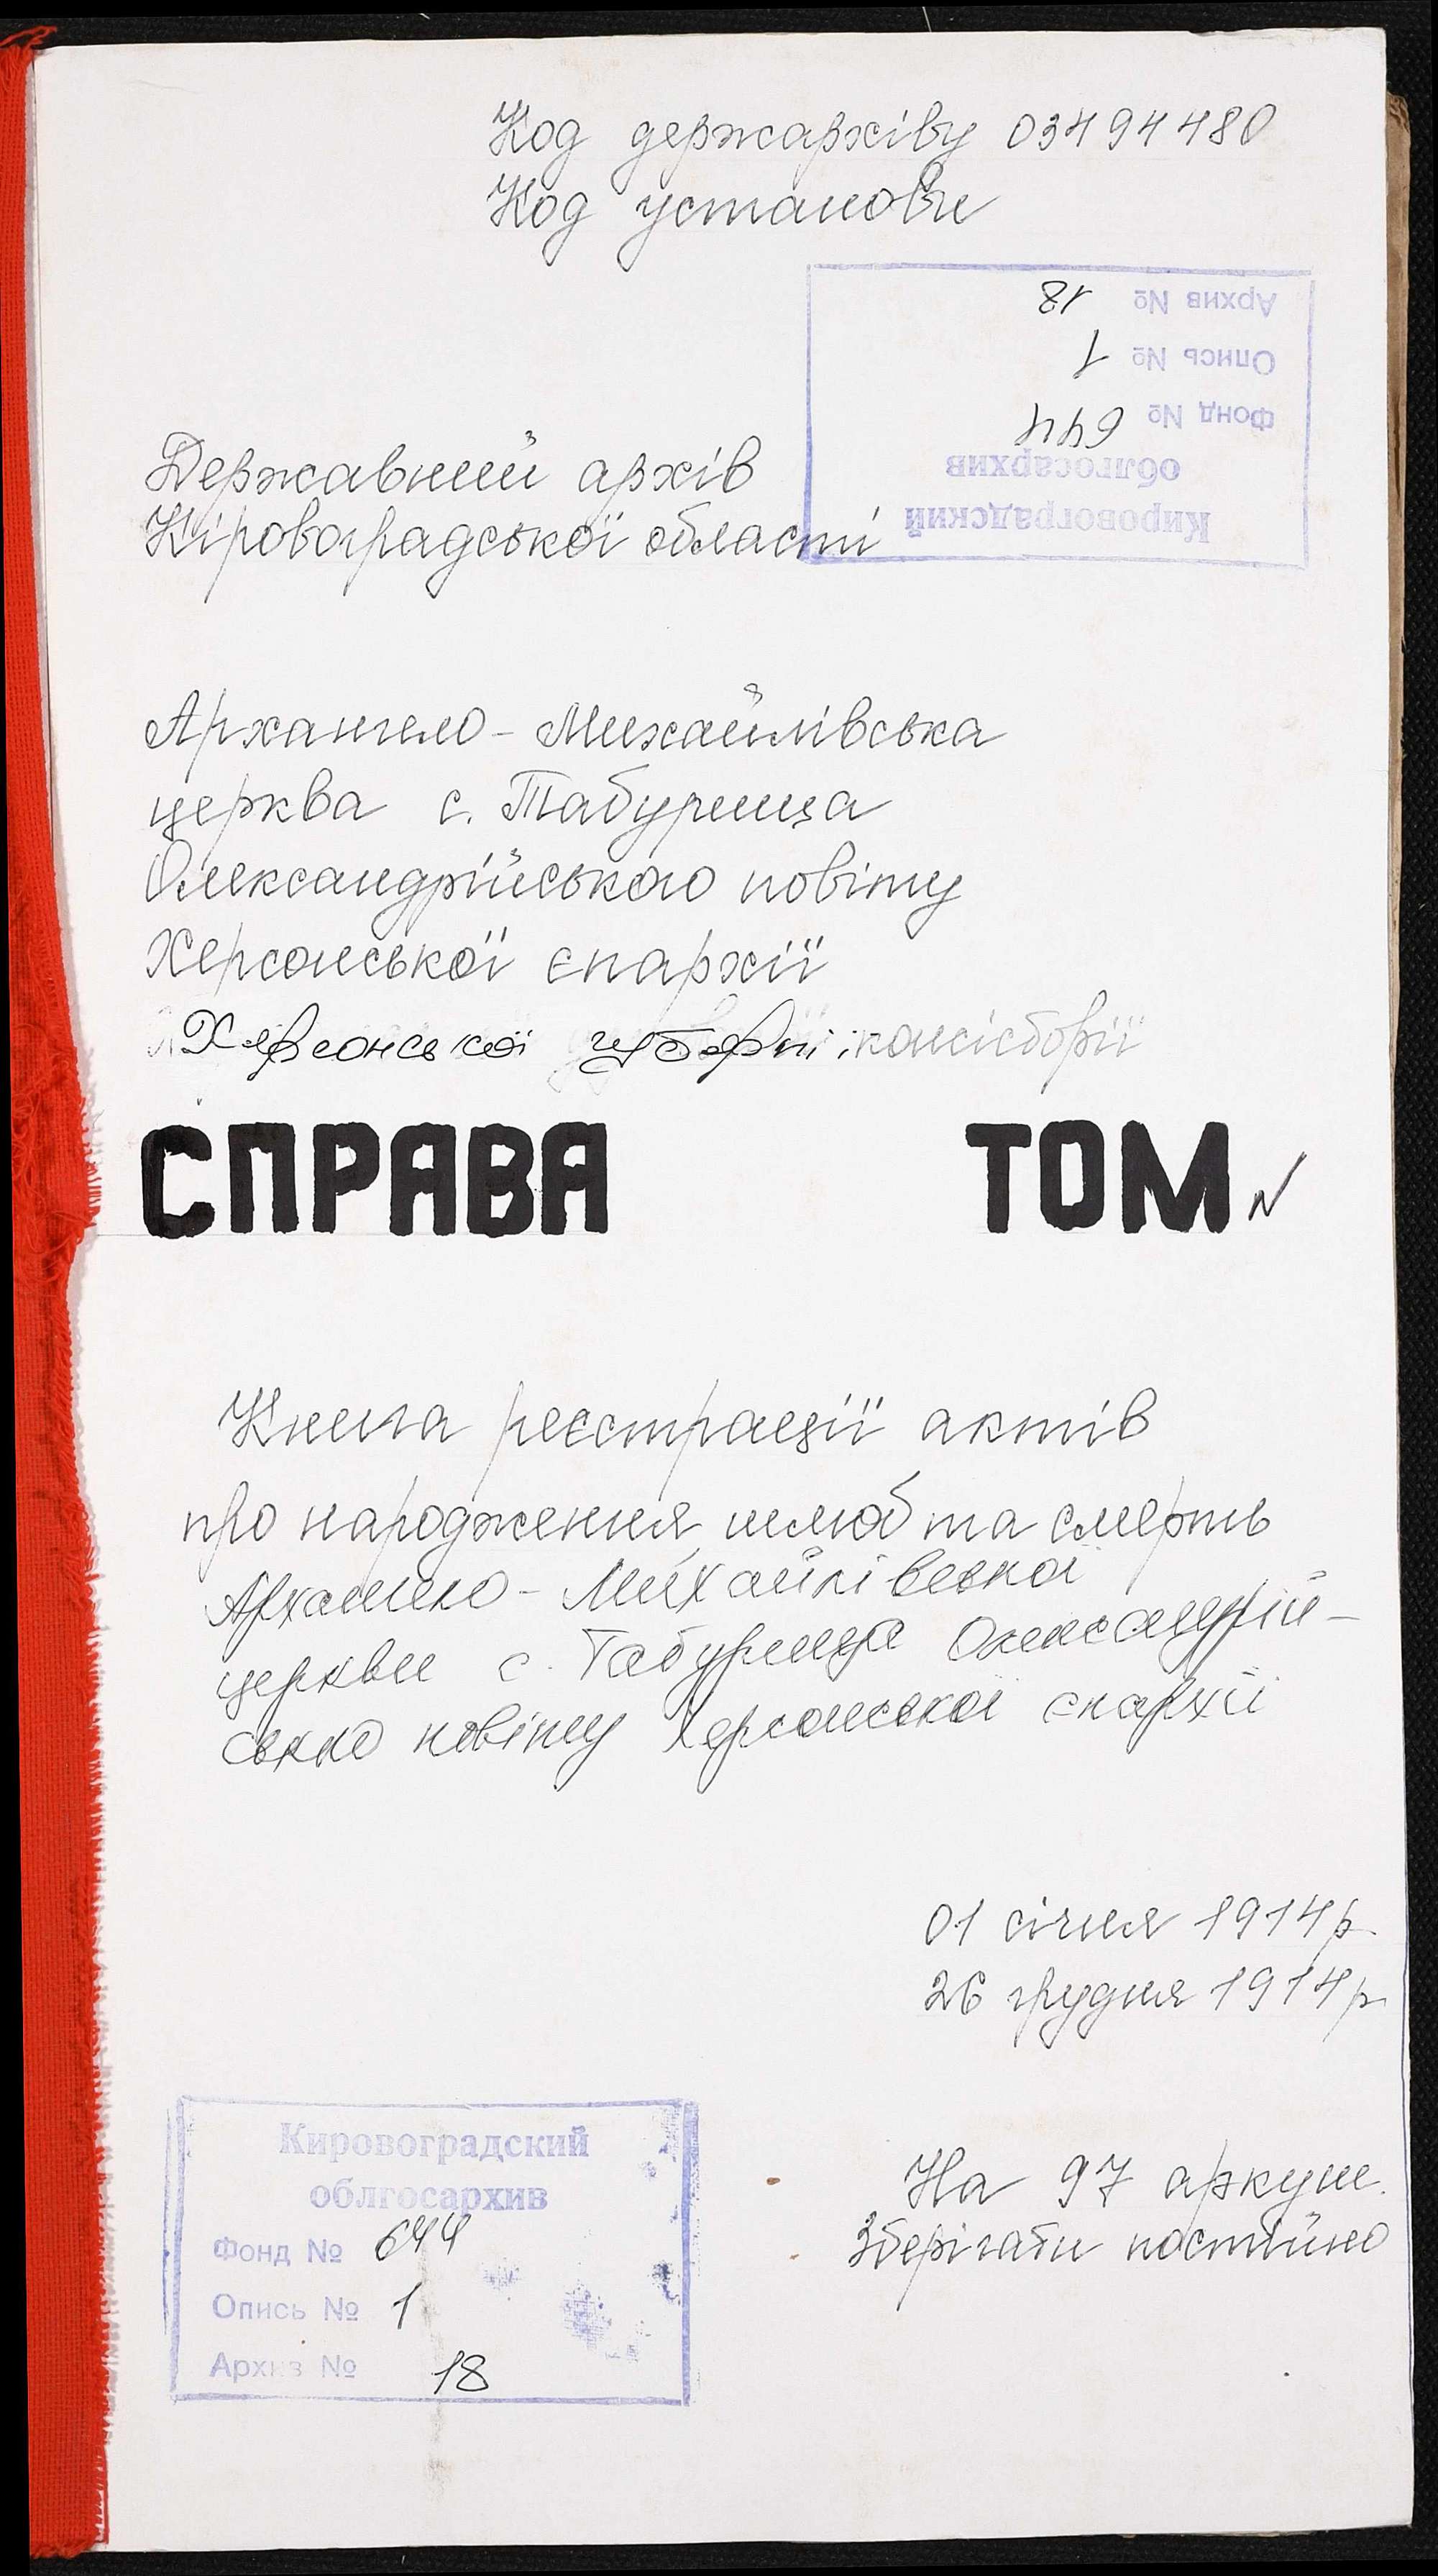 Код держархіву 03494480
Код установи
Кировоградский
облгосархив
Фонд № 644
Опись № 1
Архив № 18
Державний архів
Кіровоградської області
Архангело-Михайлівська
церква с. Табурища
Олександрійського повіту
Херсонської єпархії
Херсонської губернії консісторії
СПРАВА ТОМ
Книга реєстрації актів
про народження, шлюб та смерть
Архангело-Михайлівської
церкви с. Табурища Олександрій-
сько повіту Херсонської єпархії
01 січня 1914 р.
26 грудня 1914 р
Кировоградский
облгосархив
Фонд № 644
Опись № 1
Архив № 18
На 97 аркуш.
Зберігати постійно